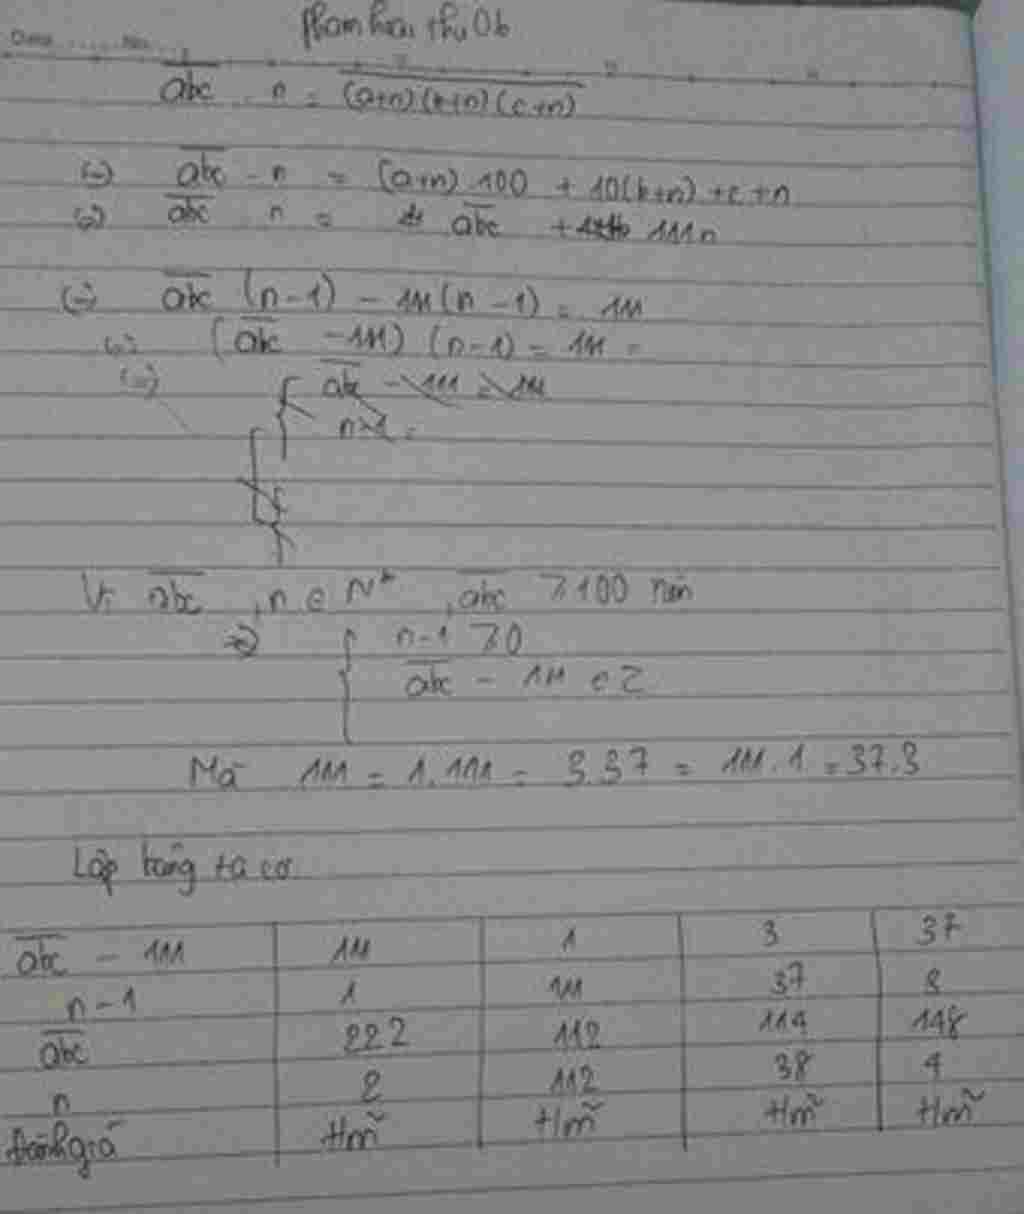 Date No.
abc . n = (a+n)(b+n)(c+n)
(=) abc . n = (a+n) 100 + 10(b+n) + c + n
abc n = abc + 111n
(=) abc (n-1) - 111(n-1) = 111
(abc - 111) (n-1) = 111
(=) abc - 111 = 111
n-1 =
Vì abc , n ∈ N* , abc ≥ 100 nên
=> n-1 ≥ 0
abc - 111 ∈ Z
Mà 111 = 1.111 = 3.37 = 111.1 = 37.3
Lập bảng ta có
abc - 111 111 1 3 37
n-1 1 111 37 8
abc 222 112 114 148
n 2 112 38 4
Đánh giá t/m t/m t/m t/m